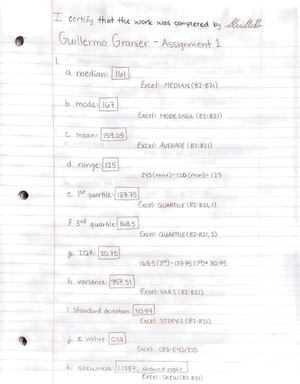 I certify that the work was completed by
Guillermo Granier - Assignment 1
1.
a. median: 161
Excel: MEDIAN (B2:B21)
b. mode: 167
Excel: MODE.SNGL (B2:B21)
c. mean: 159.05
Excel: AVERAGE (B2:B21)
d. range: 125
245 (max) - 120 (min) = 125
e. 1st quartile: 137.75
Excel: QUARTILE (B2:B21, 1)
f. 3rd quartile: 168.5
Excel: QUARTILE (B2:B21, 3)
g. IQR: 30.75
168.5 (3rd) - 137.75 (1st) = 30.75
h. variance: 957.31
Excel: VAR.S (B2:B21)
i. standard deviation: 30.94
Excel: STDEV.S (B2:B21)
j. z value: 0.58
Excel:
k. skewness: 1.1387, skewed right
Excel: SKEW (B2:B21)